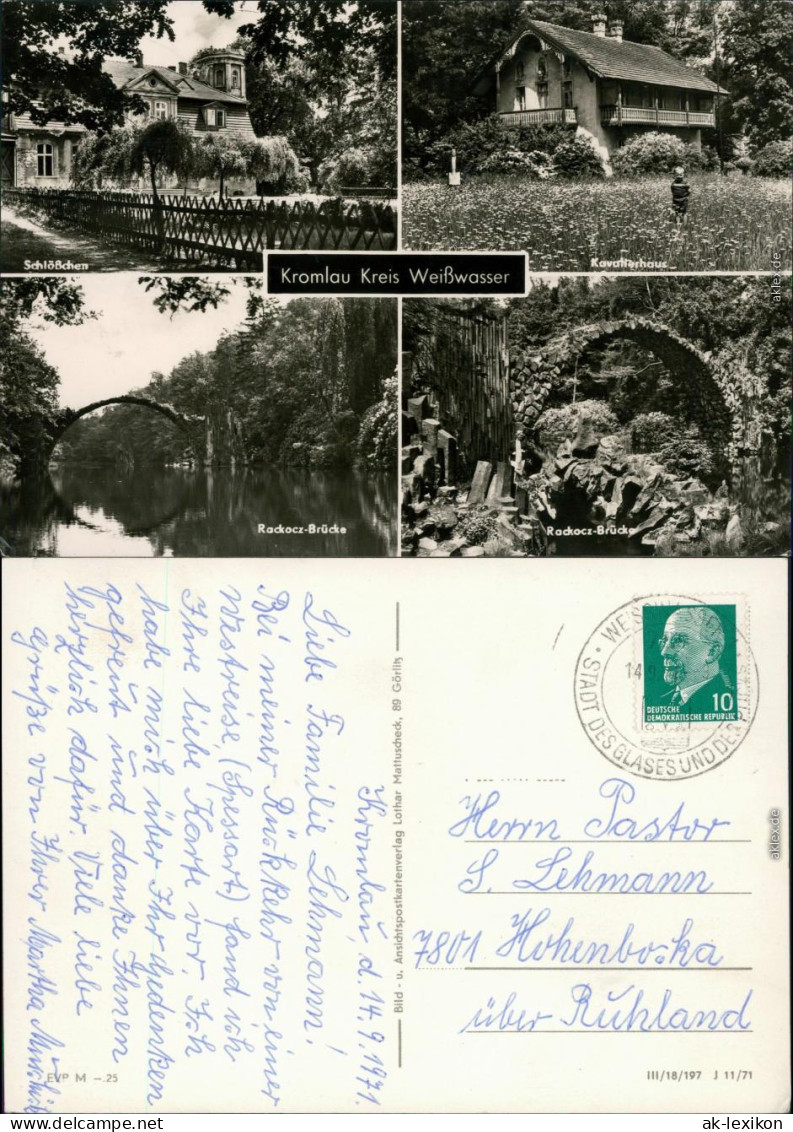 Schlößchen
Kavalierhaus
Kromlau Kreis Weißwasser
Rackocz-Brücke
Rackocz-Brücke
aklex.de
Kromlau, d. 14.9.1971.
Liebe Familie Lehmann!
Bei meiner Rückkehr von einer
Westreise, (Spessart) fand ich
Ihre liebe Karte vor. Ich
habe mich über Ihr Gedenken
gefreut und danke Ihnen
herzlich dafür. Viele liebe
Grüße von Ihrer Martha
EVP M –.25
Bild - u. Ansichtspostkartenverlag Lothar Mattuscheck, 89 Görlitz
STADT DES GLASES UND DER
10
DEUTSCHE
DEMOKRATISCHE REPUBLIK
Herrn Pastor
S. Lehmann
7801 Hohenbocka
über Ruhland
III/18/197 J 11/71
aklex.de
ak-lexikon